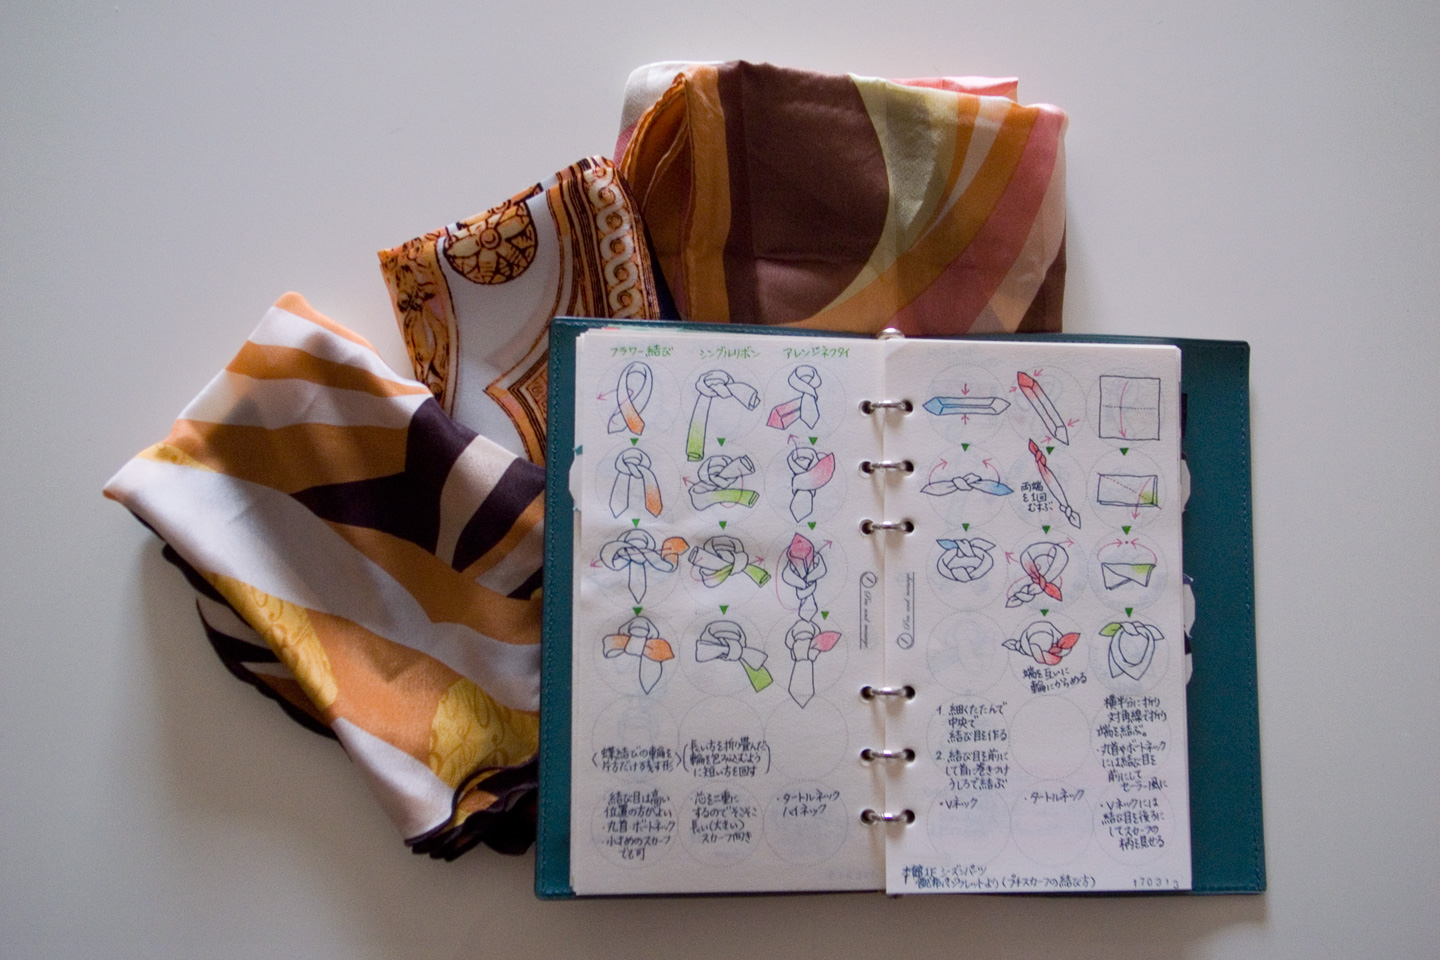 フラワー結び
シングルリボン
アレンジネクタイ
(蝶結びの輪を
片方だけ残す形)
(長い方を折り畳んだ
輪を包み込むよう
に短い方を回す)
・結び目は高い
位置の方がよい
・丸首・ボートネック
・小さめのスカーフ
でも可
芯を二重に
するのでそこそこ
長い(大きい)
スカーフ向き
・タートルネック
ハイネック
両端
を1回
むすぶ
端を互いに
輪にからめる
1. 細くたたんで
中央で
結び目を作る
2. 結び目を前に
して首に巻きつけ
うしろで結ぶ
・Vネック
・タートルネック
横半分に折り
対角線で折り
端を結ぶ。
・丸首やボートネック
には結び目を
前にして
セーラー風に
・Vネックには
結び目を後ろに
してスカーフの
柄を見せる
本館1F シーズンパーツ
配布パンフレットより(プチスカーフの結び方)
170313